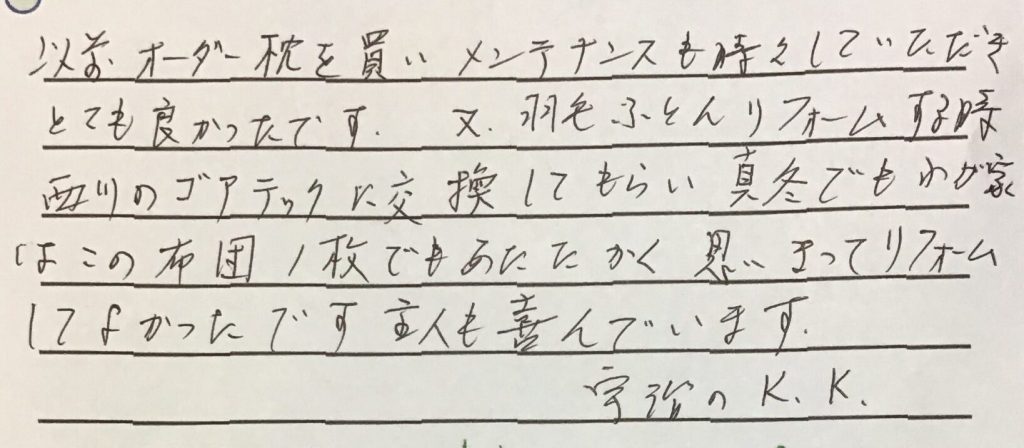 以前オーダー枕を買いメンテナンスも時々していただき
とても良かったです. 又. 羽毛ふとんリフォームする時
西川のゴアテックに交換してもらい真冬でもわが家
はこの布団1枚でもあたたかく思いきってリフォーム
してよかったです主人も喜んでいます.
宇治のK.K.